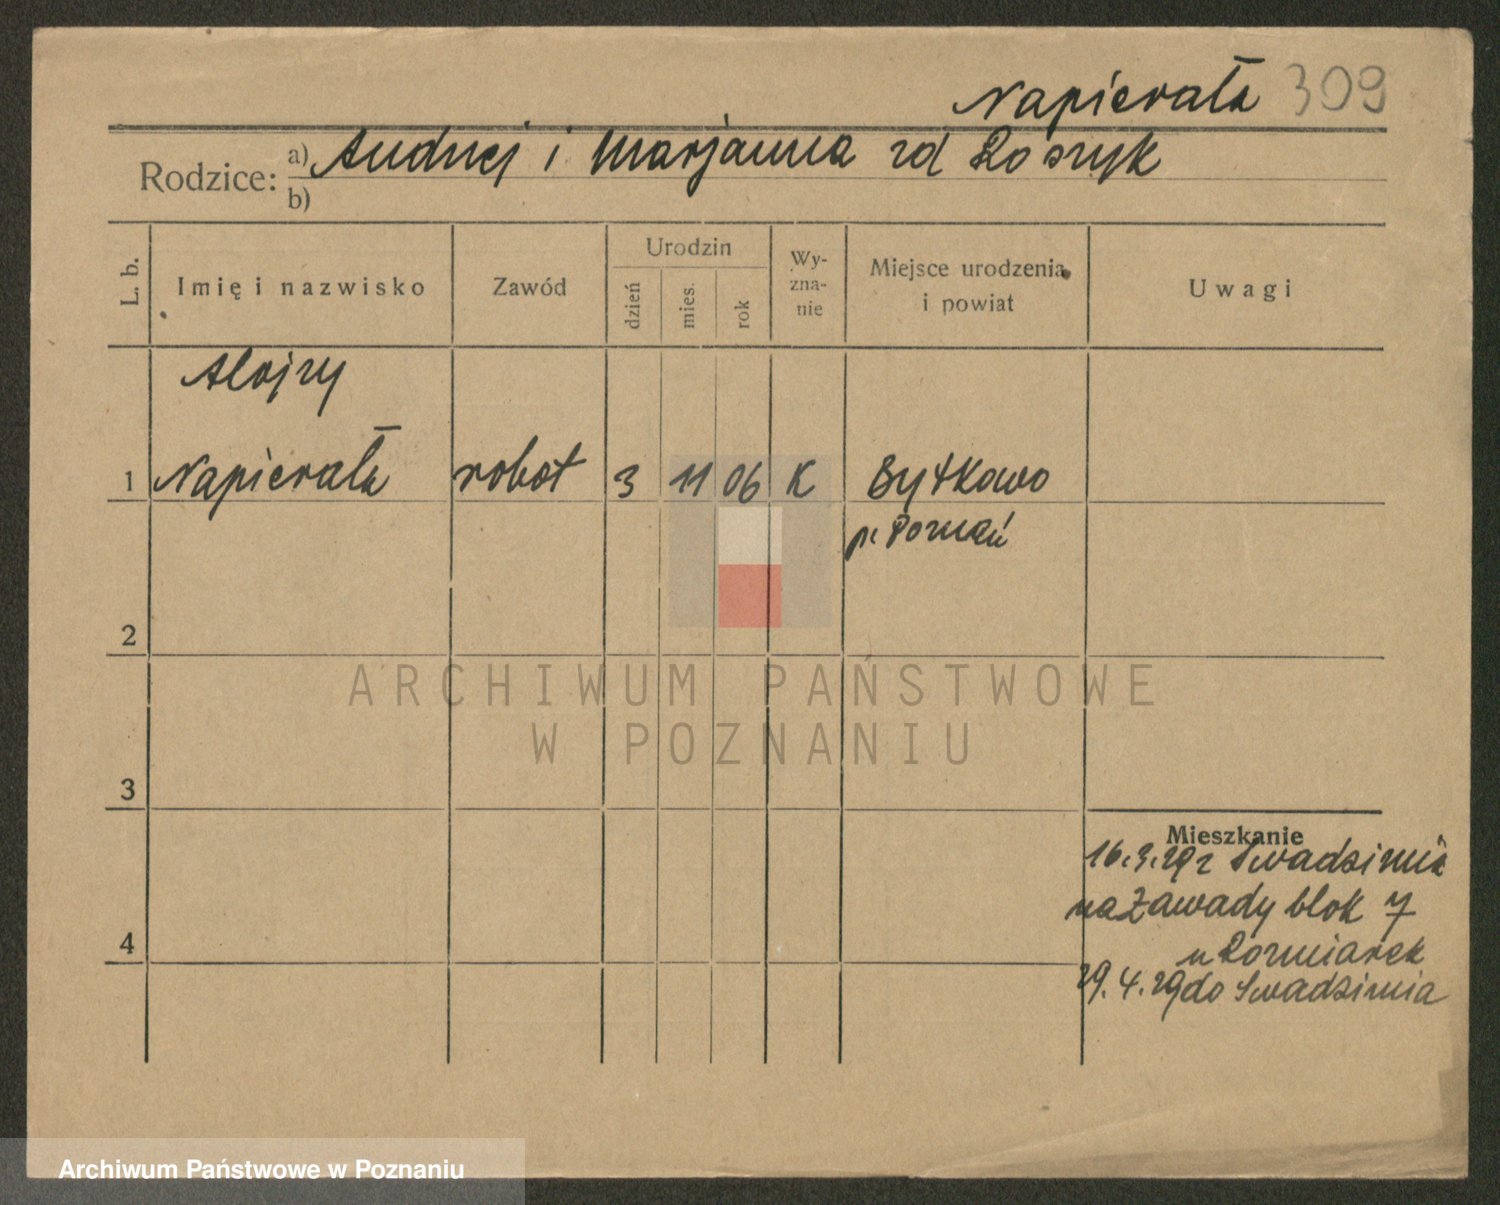 Napierała 309
Rodzice: a) Andrzej i Marjanna zd Roszyk
b)
L. b.
Imię i nazwisko
Zawód
Urodzin
dzień
mies.
rok
Wy-
zna-
nie
Miejsce urodzenia
i powiat
Uwagi
Alojzy
1 Napierała robot 3 11 06 K Bytkowo
p. Poznań
2
ARCHIWUM PAŃSTWOWE
W POZNANIU
3
Mieszkanie
16.3.29 z Swadzimia
na Zawady blok 7
u Rozmiarek
4
29.4.29 do Swadzimia
Archiwum Państwowe w Poznaniu